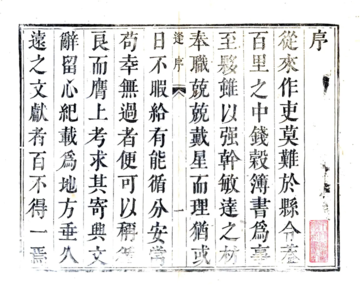 序
從來作吏莫難於縣令蓋
百里之中錢穀簿書爲事
至夥雖以强幹敏達之材
奉職兢兢戴星而理猶或
遂序
一
日不暇給有能循分安常
苟幸無過者便可以稱
良而膺上考求其寄興文
辭留心紀載爲地方垂久
遠之文獻者百不得一焉